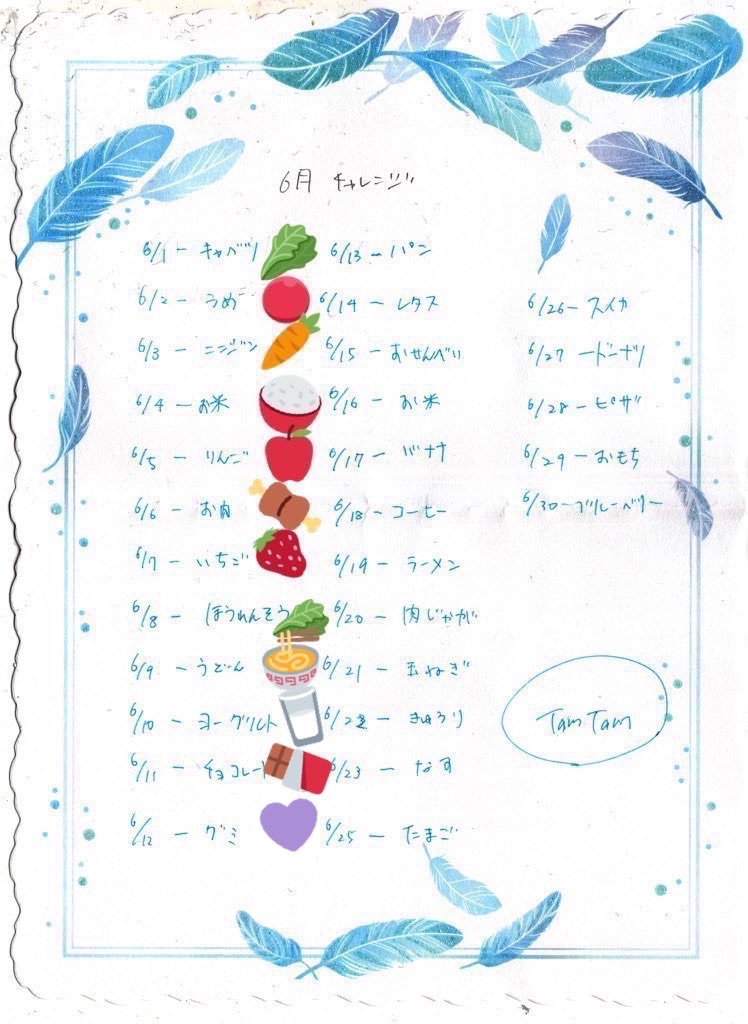 6月 チャレンジ
6/1 ー キャベツ
6/2 ー うめ
6/3 ー ニンジン
6/4 ー お米
6/5 ー りんご
6/6 ー お肉
6/7 ー いちご
6/8 ー ほうれんそう
6/9 ー うどん
6/10 ー ヨーグルト
6/11 ー チョコレート
6/12 ー グミ
6/13 ー パン
6/14 ー レタス
6/15 ー おせんべい
6/16 ー お米
6/17 ー バナナ
6/18 ー コーヒー
6/19 ー ラーメン
6/20 ー 肉じゃが
6/21 ー 玉ねぎ
6/22 ー きゅうり
6/23 ー なす
6/25 ー たまご
6/26 ー スイカ
6/27 ー ドーナツ
6/28 ー ピザ
6/29 ー おもち
6/30 ー ブルーベリー
Tam Tam